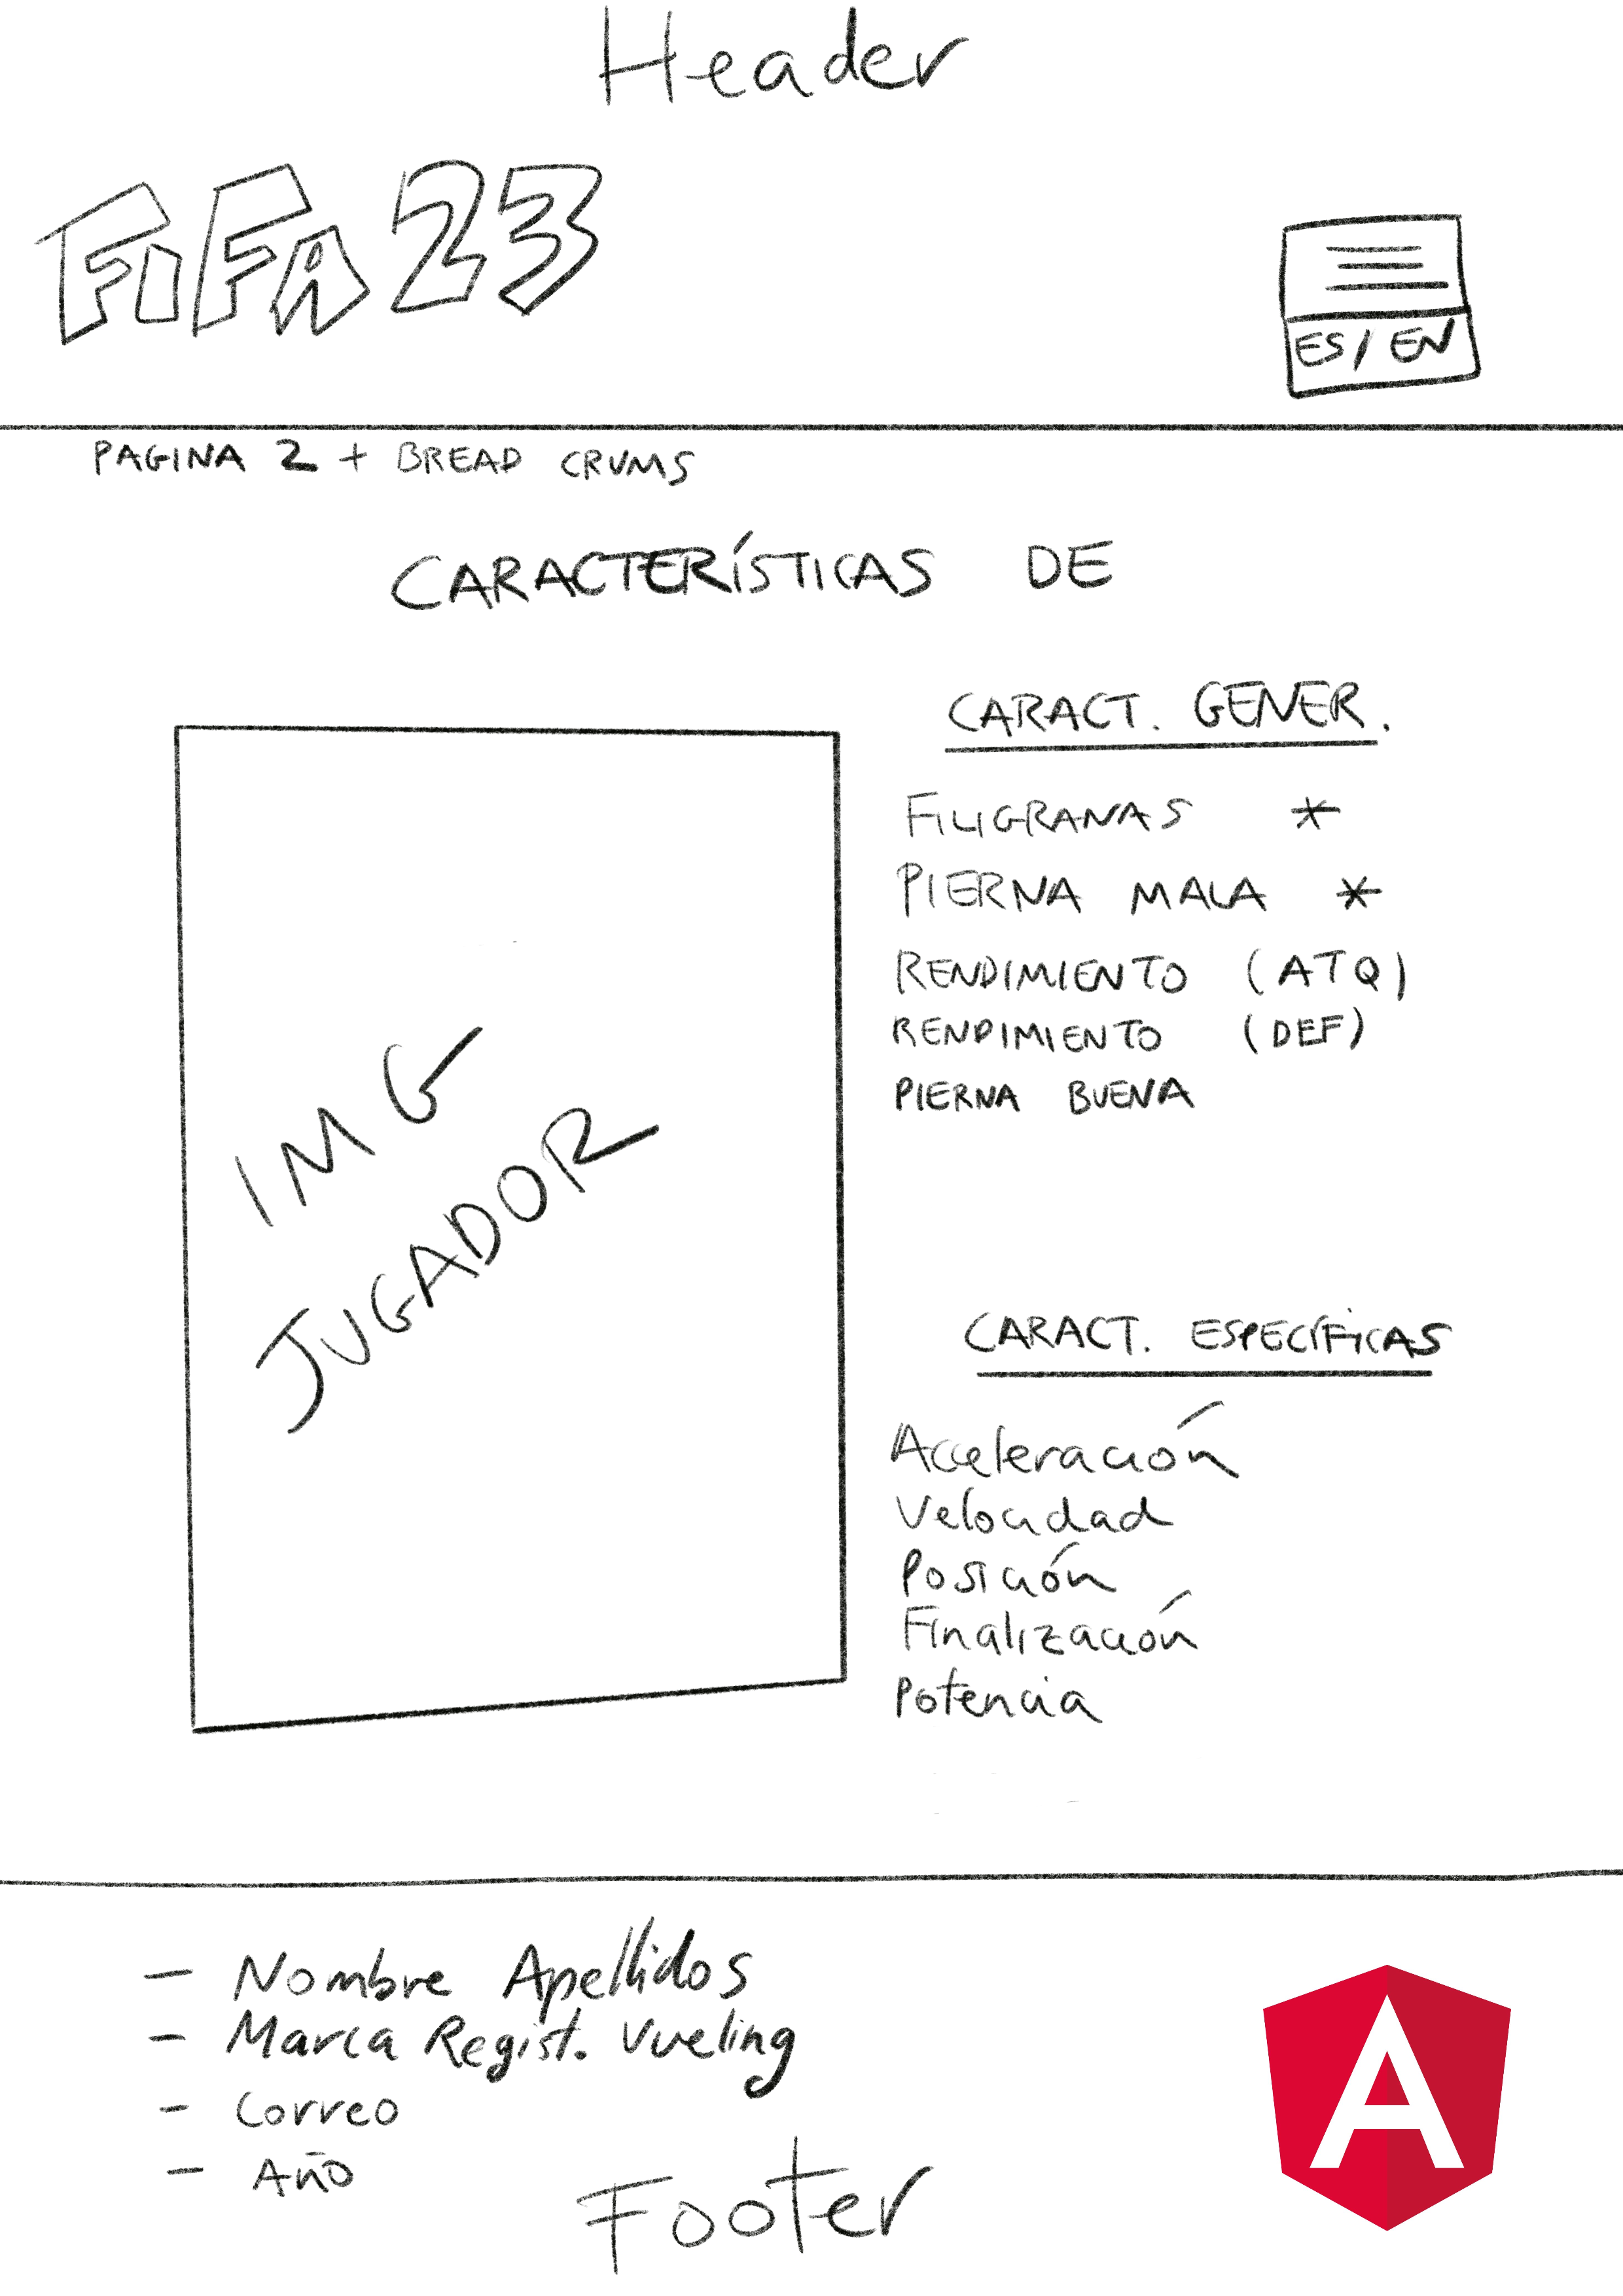 Header
FiFA 23
ES/EN
PAGINA 2 + BREAD CRUMS
CARACTERÍSTICAS DE
CARACT. GENER.
FILIGRANAS *
PIERNA MALA *
RENDIMIENTO (ATQ)
RENDIMIENTO (DEF)
PIERNA BUENA
IMG
JUGADOR
CARACT. ESPECÍFICAS
Acceleración
Velocidad
Posición
Finalización
Potencia
- Nombre Apellidos
- Marca Regist. Vueling
- Correo
- Año
Footer
A